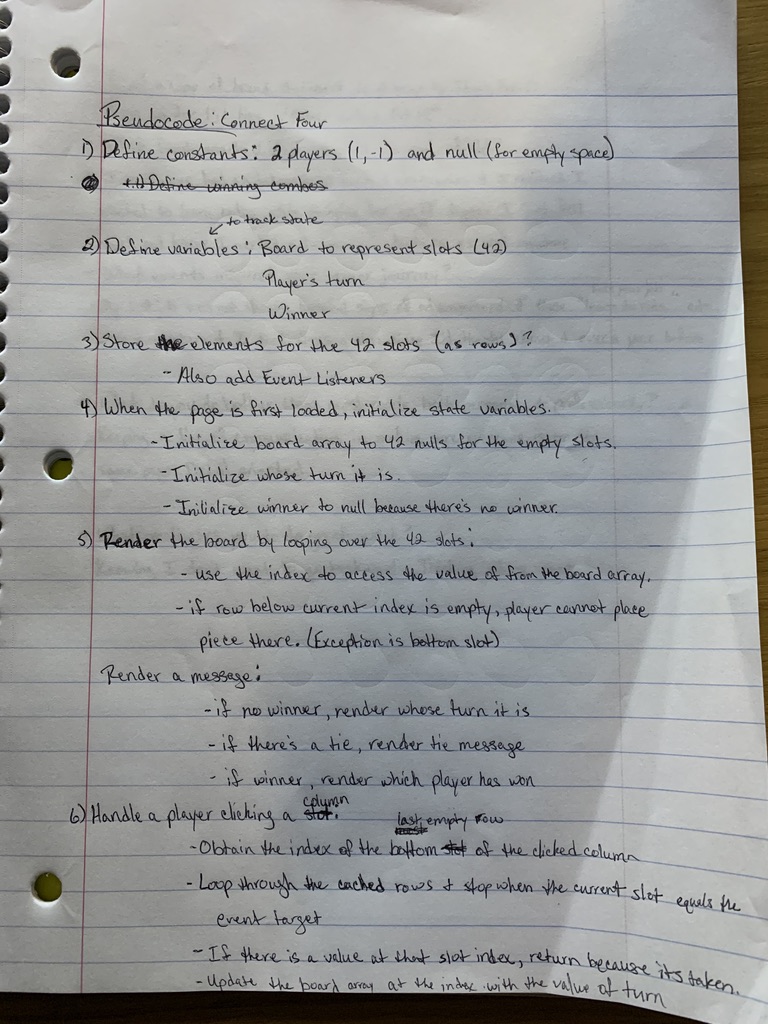 Pseudocode: Connect Four
1) Define constants: 2 players (1,-1) and null (for empty space)
1.1) Define winning combos
to track state
2) Define variables: Board to represent slots (42)
Player's turn
Winner
3) Store the elements for the 42 slots (as rows)?
- Also add Event Listeners
4) When the page is first loaded, initialize state variables.
- Initialize board array to 42 nulls for the empty slots.
- Initialize whose turn it is.
- Initialize winner to null because there's no winner.
5) Render the board by looping over the 42 slots:
- use the index to access the value of from the board array.
- if row below current index is empty, player cannot place
piece there. (Exception is bottom slot)
Render a message:
- if no winner, render whose turn it is
- if there's a tie, render tie message
- if winner, render which player has won
column
6) Handle a player clicking a slot.
last empty row
- Obtain the index of the bottom slot of the clicked column
- Loop through the cached rows + stop when the current slot equals the
event target
- If there is a value at that slot index, return because its taken.
- Update the board array at the index with the value of turn